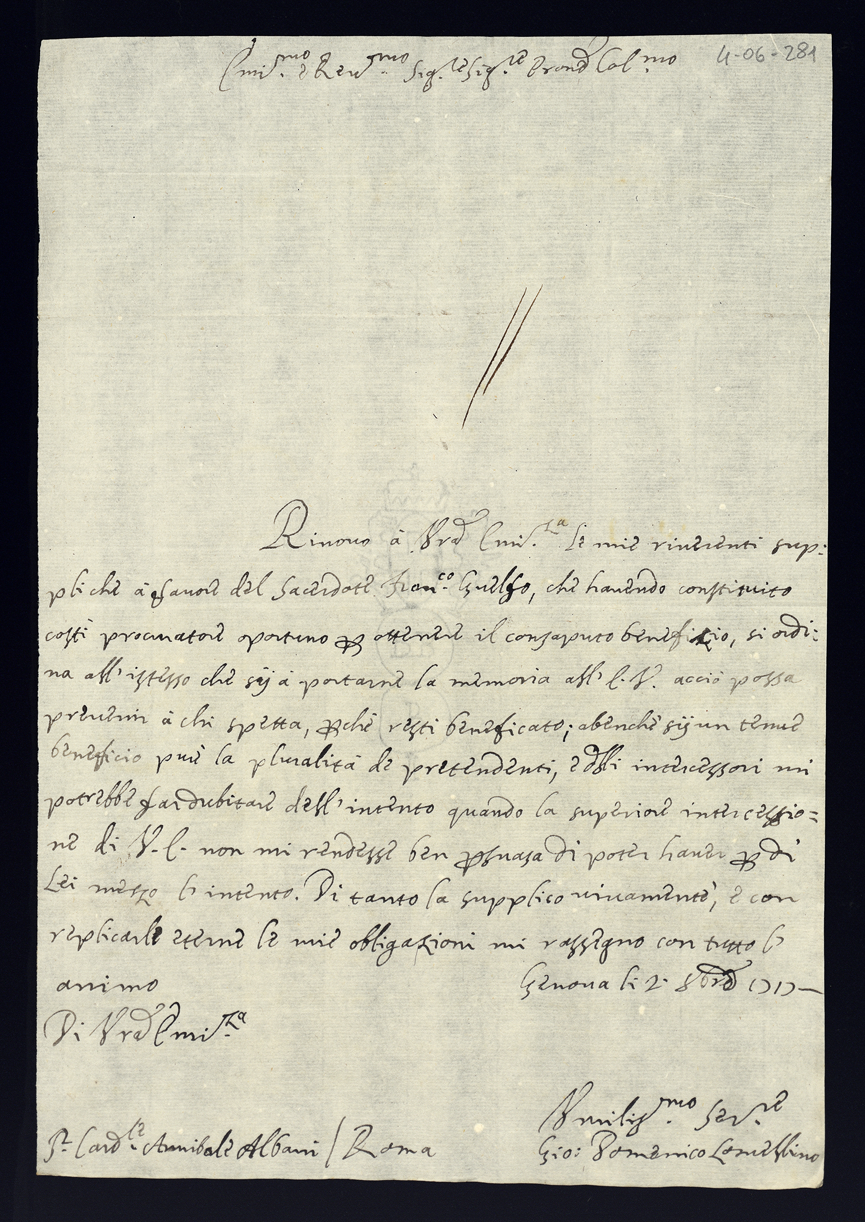 4-06-281
Emin.mo e Rev.mo Sig.re Sig.re Prond Col.mo
Rinovo à Vrã Emin.za le mie riverenti sup:
pliche à favore del Sacerdote Fran.co Guelfo, che havendo constituito
costì procuratore oportuno p ottenere il consaputo beneficio, si ordi:
na all'istesso che sij à portarne la memoria all'E.V. acciò possa
prevenir à chi spetta, pchè resti beneficato; abenchè sij un tenue
beneficio pure la pluralità de pretendenti, e d'essi intercessori mi
potrebbe far dubitare dell'intento quando la superiore intercessio=
ne di V.E. non mi rendesse ben psuasa di poter haver p di
Lei mezzo l'intento. Di tanto la supplico vivamente, e con
replicarle eterne le mie obligazioni mi rassegno con tutto l'
animo
Genova li 2 8bre 1717
Di Vrã Emin.za
Umilis.mo Ser.re
Gio: Domenico
S.r Card.le Annibale Albani / Roma